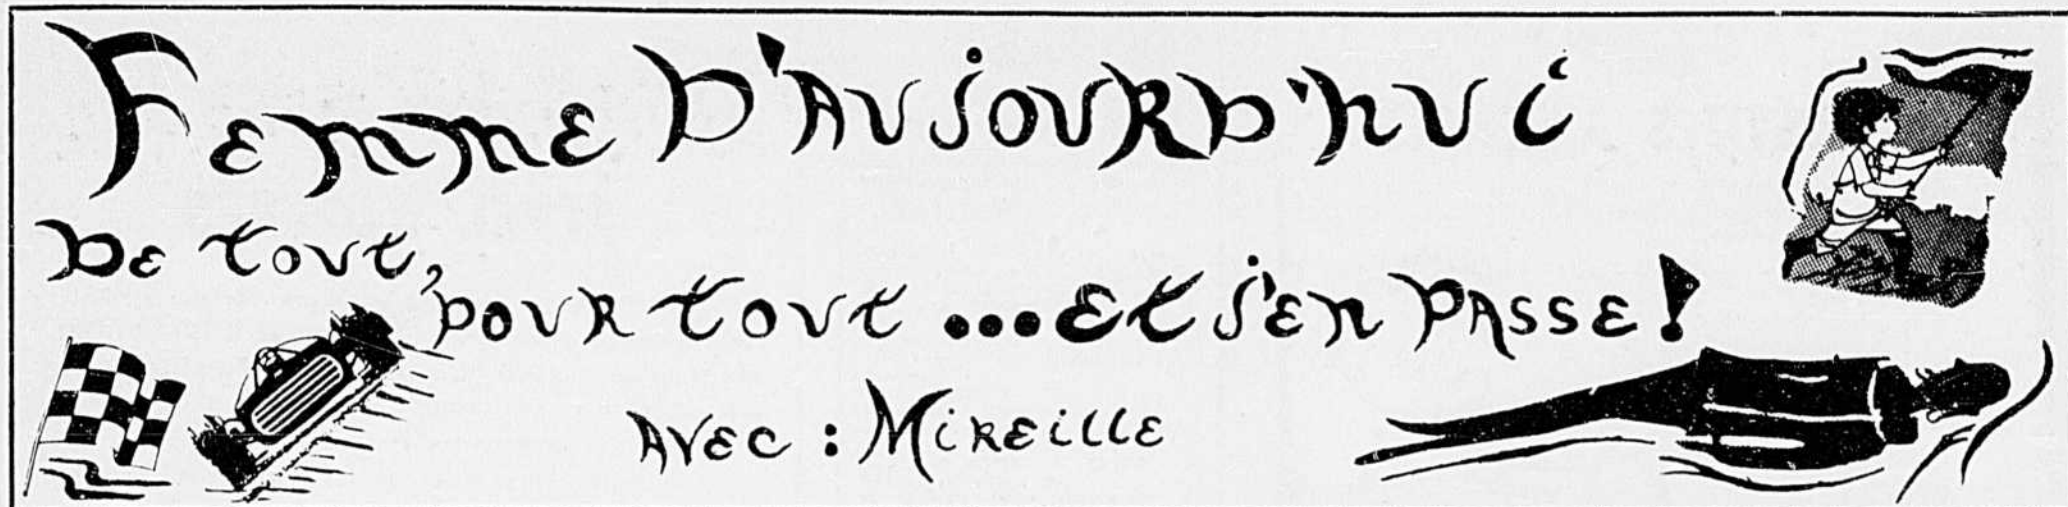 Femme D'Aujourd'hui
De tout, pour tout ... et j'en passe!
Avec : Mireille